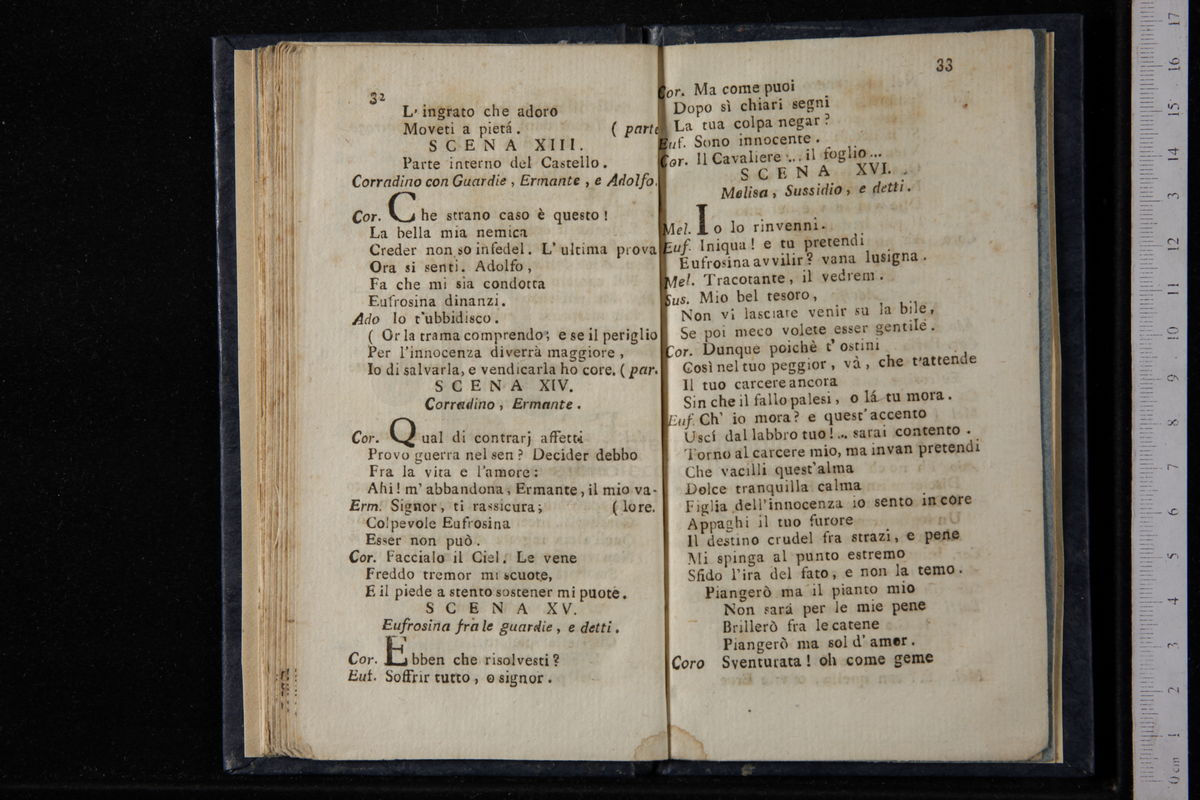 32
L' ingrato che adoro
Moveti a pietá. ( parte
SCENA XIII.
Parte interno del Castello.
Corradino con Guardie, Ermante, e Adolfo.
Cor. Che strano caso è questo!
La bella mia nemica
Creder non so infedel. L' ultima prova
Ora si senti. Adolfo,
Fa che mi sia condotta
Eufrosina dinanzi.
Ado Io t'ubbidisco.
( Or la trama comprendo; e se il periglio
Per l'innocenza diverrà maggiore,
Io di salvarla, e vendicarla ho core. ( par.
SCENA XIV.
Corradino, Ermante.
Cor. Qual di contrarj affetti
Provo guerra nel sen? Decider debbo
Fra la vita e l'amore:
Ahi! m' abbandona, Ermante, il mio va-
Erm. Signor, ti rassicura; ( lore.
Colpevole Eufrosina
Esser non può.
Cor. Faccialo il Ciel. Le vene
Freddo tremor mi scuote,
E il piede a stento sostener mi puote.
SCENA XV.
Eufrosina fra le guardie, e detti.
Cor. Ebben che risolvesti?
Euf. Soffrir tutto, o signor.
33
Cor. Ma come puoi
Dopo sì chiari segni
La tua colpa negar?
Euf. Sono innocente.
Cor. Il Cavaliere ... il foglio...
SCENA XVI.
Melisa, Sussidio, e detti.
Mel. Io lo rinvenni.
Euf. Iniqua! e tu pretendi
Eufrosina avvilir? vana lusigna.
Mel. Tracotante, il vedrem.
Sus. Mio bel tesoro,
Non vi lasciate venir su la bile,
Se poi meco volete esser gentile.
Cor. Dunque poichè t' ostini
Così nel tuo peggior, và, che t'attende
Il tuo carcere ancora
Sin che il fallo palesi, o lá tu mora.
Euf. Ch' io mora? e quest' accento
Uscí dal labbro tuo!... sarai contento.
Torno al carcere mio, ma invan pretendi
Che vacilli quest'alma
Dolce tranquilla calma
Figlia dell'innocenza io sento in core
Appaghi il tuo furore
Il destino crudel fra strazi, e pene
Mi spinga al punto estremo
Sfido l'ira del fato, e non la temo.
Piangerò ma il pianto mio
Non sará per le mie pene
Brillerò fra le catene
Piangerò ma sol d' amor.
Coro Sventurata! oh come geme